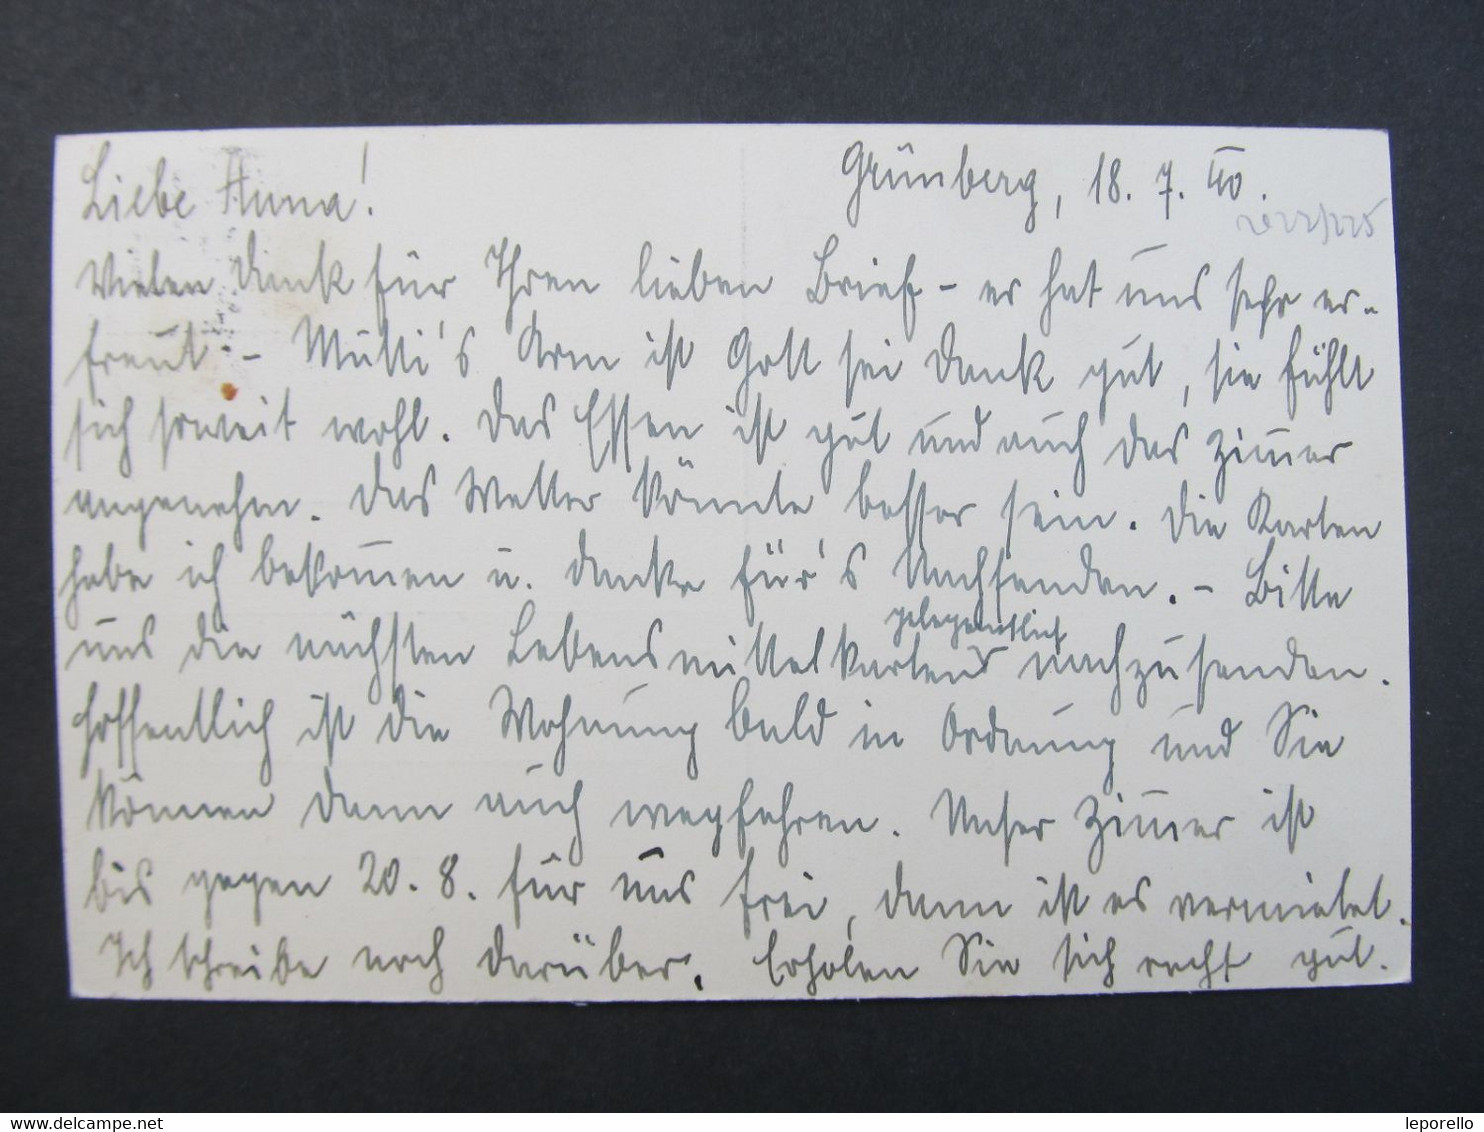 Liebe Anna!
Grünberg, 18. 7. 40.
Vielen Dank für Ihren lieben Brief - er hat uns sehr er-
freut. - Mutti's Arm ist Gott sei Dank gut, sie fühlt
sich soweit wohl. Das Essen ist gut und auch das Zim̅er
angenehm. Das Wetter könnte besser sein. Die Karten
habe ich bekom̅en u. danke für's Nachsenden. - Bitte
uns die nächsten Lebensmittelkarten gelegentlich nachzusenden.
Hoffentlich ist die Wohnung bald in Ordnung und Sie
können dann auch wegfahren. Unser Zim̅er ist
bis gegen 20. 8. für uns frei, dann ist es vermietet.
Ich schreibe noch darüber. Erholen Sie sich recht gut.
delcampe.net
leporello